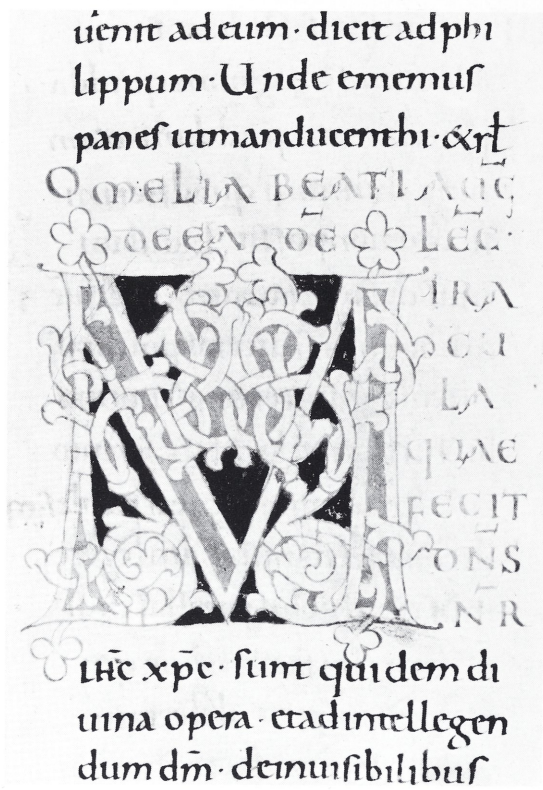 uenit adeum · dicit adphi
lippum · Unde ememus
panes utmanducenthi · &rł
OMELIA BEATI AUG̅
DEEADE LEC̅
M IRA
CU
LA
QUAE
FECIT
DN̅S
N̅R
ιHC̅ xp̅c · sunt quidem di
uina opera · etadintellegen
dum dm̅ · deinuisibilibus